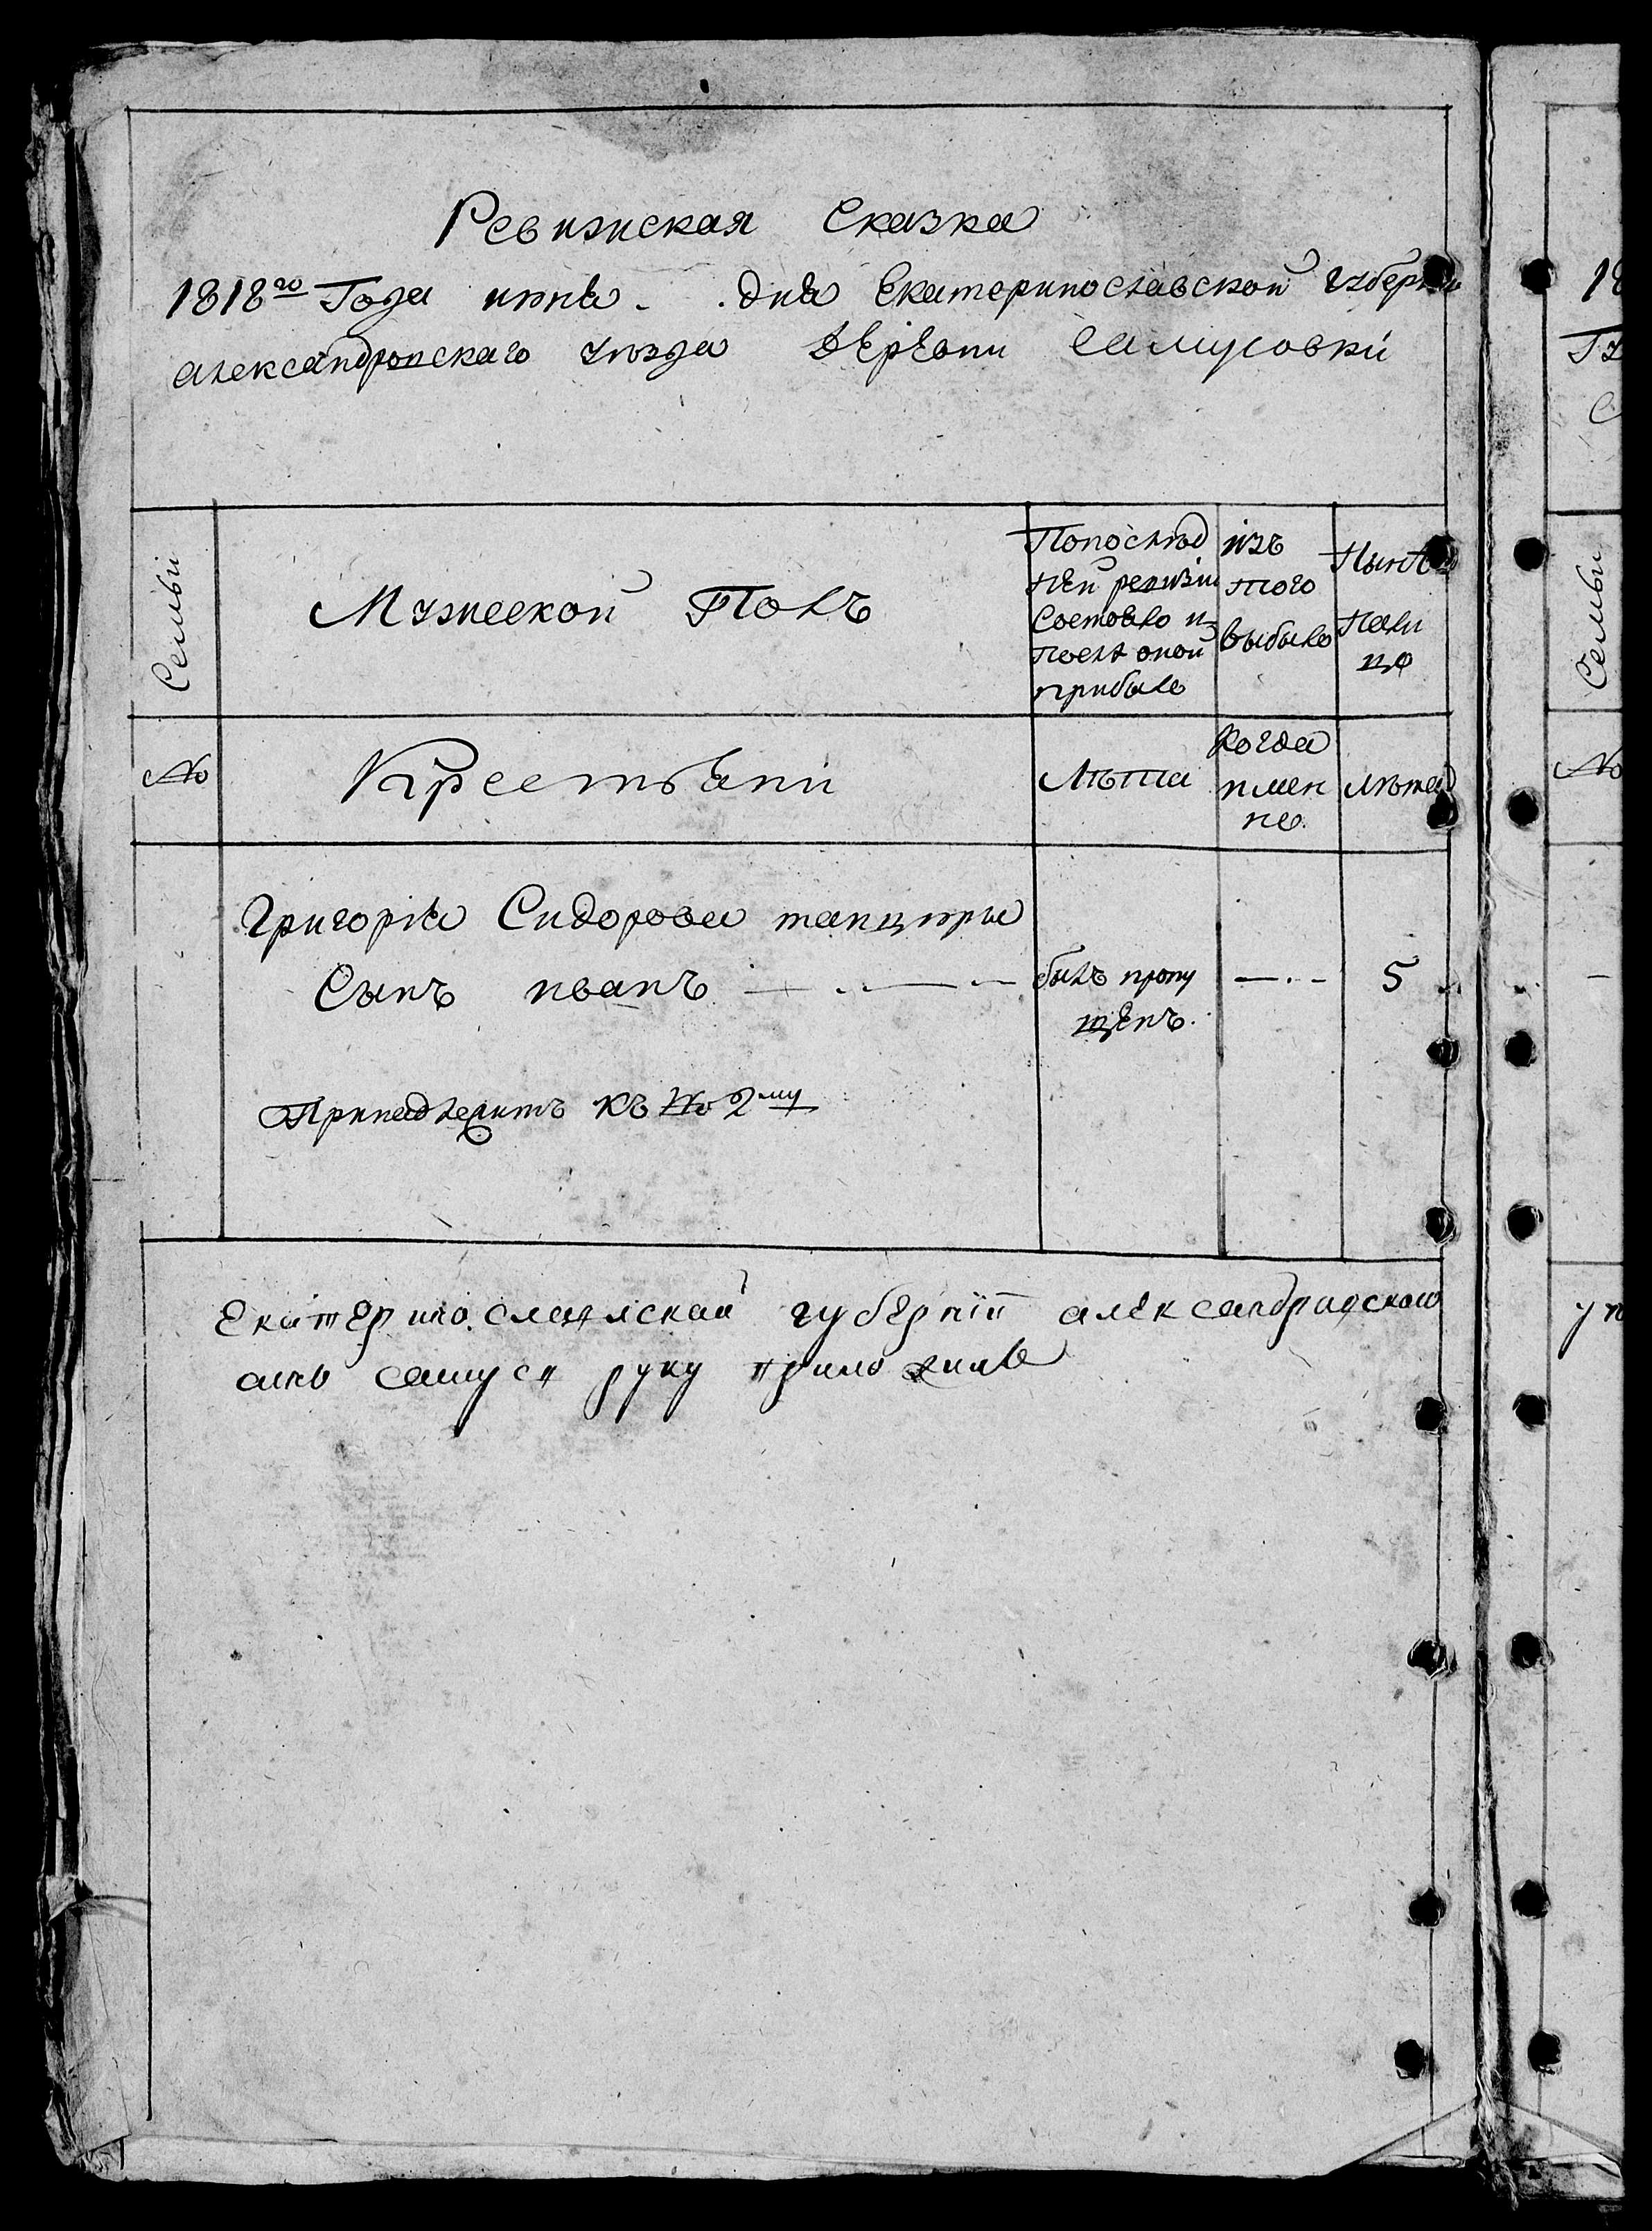 Ревизиская Сказка
1818го Года июня . дня Екатеринославской Губернiи
александровскаго уѣзда дЕрЕвни Самусовки
Семьи
Мужеской Полъ
Попослѣд
нЕй ревизiи
Состояло и
послѣ оной
прибыло
изъ
того
выбыло
НынѢ
Нали
цо
№
Крестьяни
Лѣта
Когда
имен
но.
Лѣта
Григорiя Сидорова танцюры
Сынъ иванъ
былъ пропу
щЕнъ.
5
Принадлежитъ къ № 2му
Екатерино славяской губЕрнiи александрийской
самуся руку приложилъ
18
Семьи
№